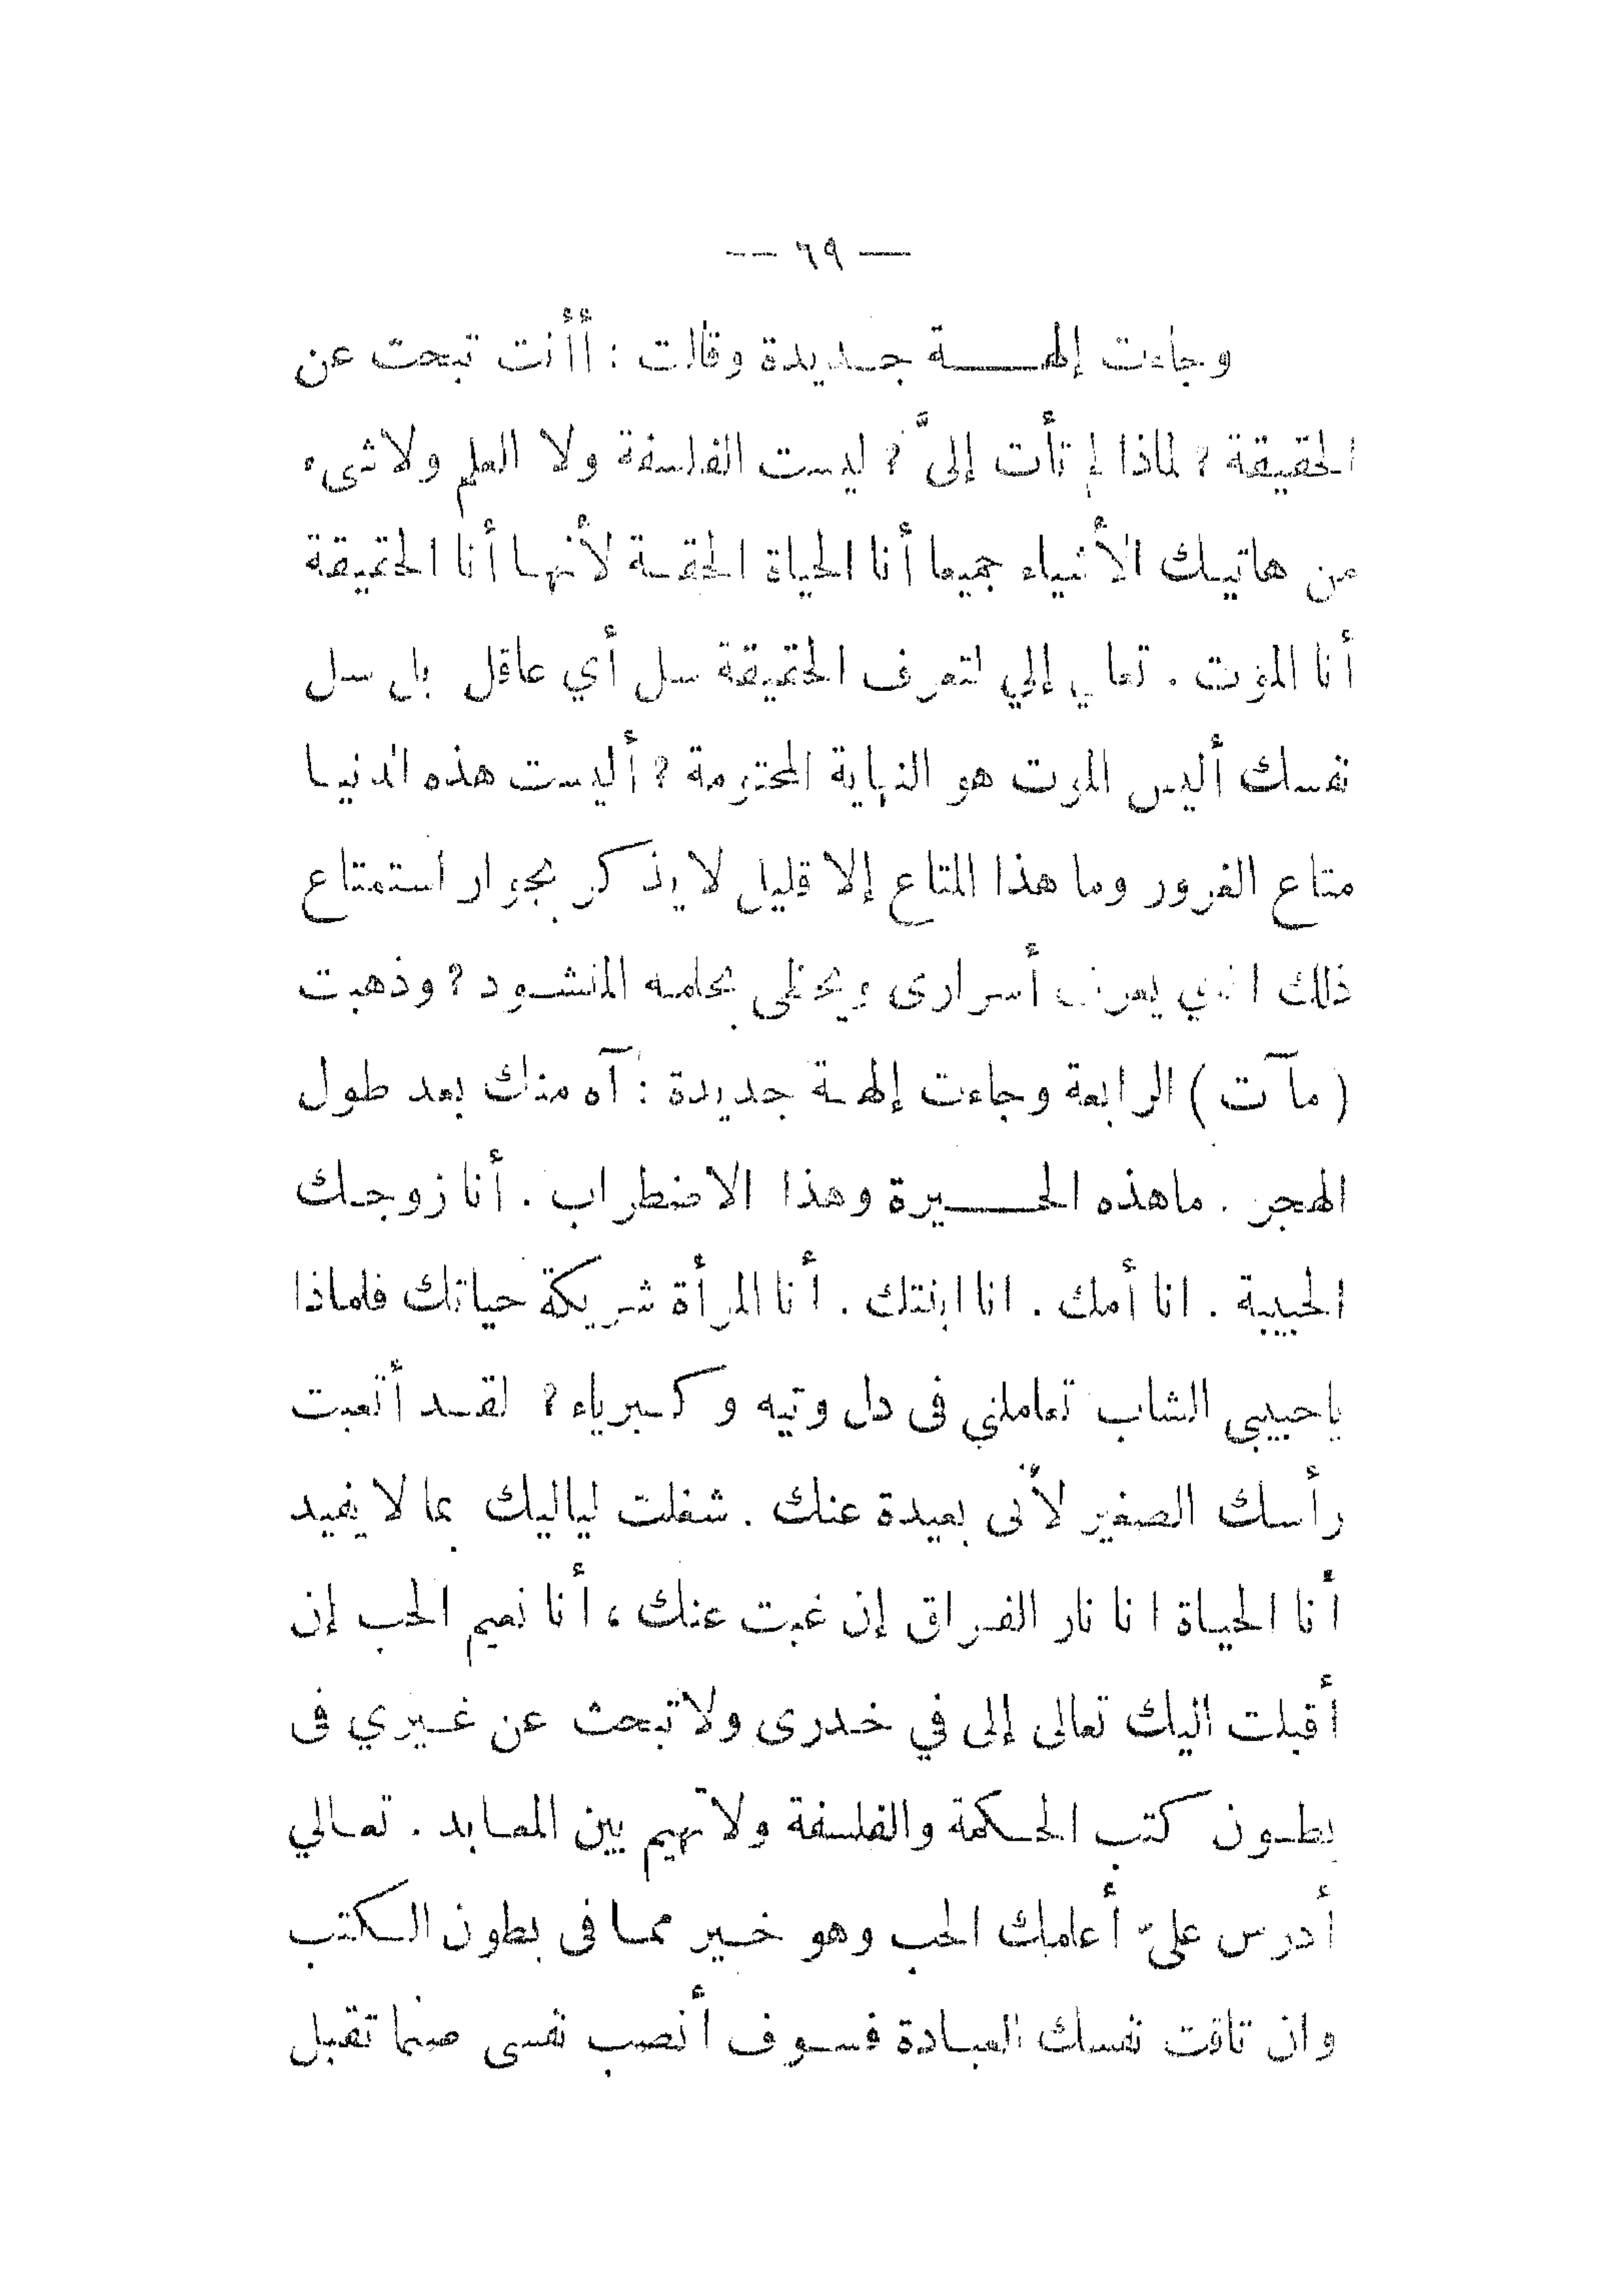 — ٦٩ —
وجاءت إلهـــة جـديدة وقالت : أأنت تبحث عن
الحقيقة ? لماذا لم تأت إلىَّ ? ليست الفلسفة ولا العلم ولاشىء
من هاتيـك الأشياء جميعا أنا الحياة الحقـة لأنهـا أنا الحقيقة
أنا الموت . تعالى إلي لتعرف الحقيقة سل أي عاقل بل سل
نفسك أليس الموت هو النهاية المحتومة ? أليست هذه الدنيـا
متاع الغرور وما هذا المتاع إلا قليل لا يذكر بجوار استمتاع
ذلك الذي يعرف أسرارى ويحظى بحلمه المنشـود ? وذهبت
( مآت ) الرابعة وجاءت إلهـة جديدة : آه منك بعد طول
الهجر . ماهذه الحـــيرة وهذا الاضطراب . أنا زوجـك
الحبيبة . انا أمك . انا ابنتك . أنا المرأة شريكة حياتك فلماذا
ياحبيبى الشاب تعاملني فى دل وتيه وكـبرياء ? لقـد أتعبت
رأسك الصغير لأنى بعيدة عنك . شغلت لياليك بما لا يفيد
أنا الحيـاة انا نار الفـراق إن غبت عنك ، أنا نعيم الحب إن
أقبلت اليك تعالى إلى في خـدرى ولا تبحث عن غـيري فى
بطـون كتب الحـكمة والفلسفة ولا تهيم بين المعـابد . تعـالي
أدرس علىّ أعلمك الحب وهو خـير ممـا فى بطون الـكتب
وان تاقت نفسك العبـادة فسـوف أنصب نفسى صنما تقبل